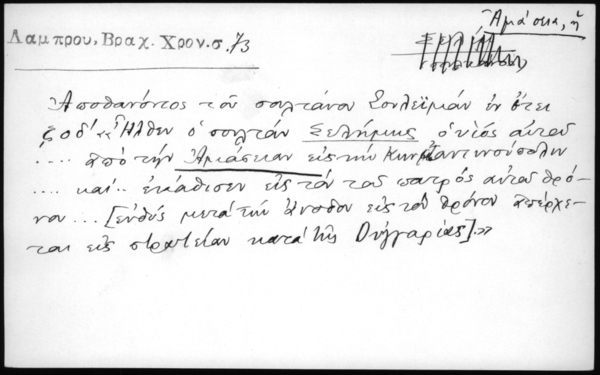 Ἀμάσεια, ἡ
Λαμπρου, Βραχ. Χρον. σ. 73
Ἀποθανόντος τοῦ σουλτάνου Σουλεϊμὰν ἐν ἔτει
ζοδ' «Ἦλθεν ὁ σουλτὰν Σελήμης ὁ υἱὸς αὐτοῦ
.... ἀπὸ τὴν Ἀμάσειαν εἰς τὴν Κωνσταντινούπολιν
.... καὶ .. ἐκάθισεν εἰς τὸν τοῦ πατρὸς αὐτοῦ θρό-
νον ... [εὐθὺς μετὰ τὴν ἄνοδον εἰς τὸν θρόνον ἀπέρχε-
ται εἰς στρατείαν κατὰ τῆς Οὑγγαρίας].»